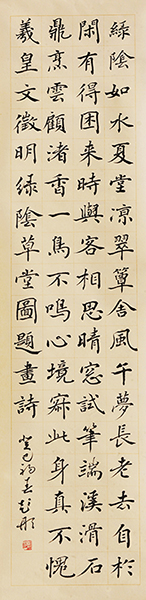 綠陰如水夏堂涼翠簟含風午夢長老去自於
閑有得困来時與客相思晴窓試筆端溪滑石
鼎烹雲顧渚香一鳥不鳴心境寂此身真不愧
羲皇文徵明綠陰草堂圖題畫詩
癸巳